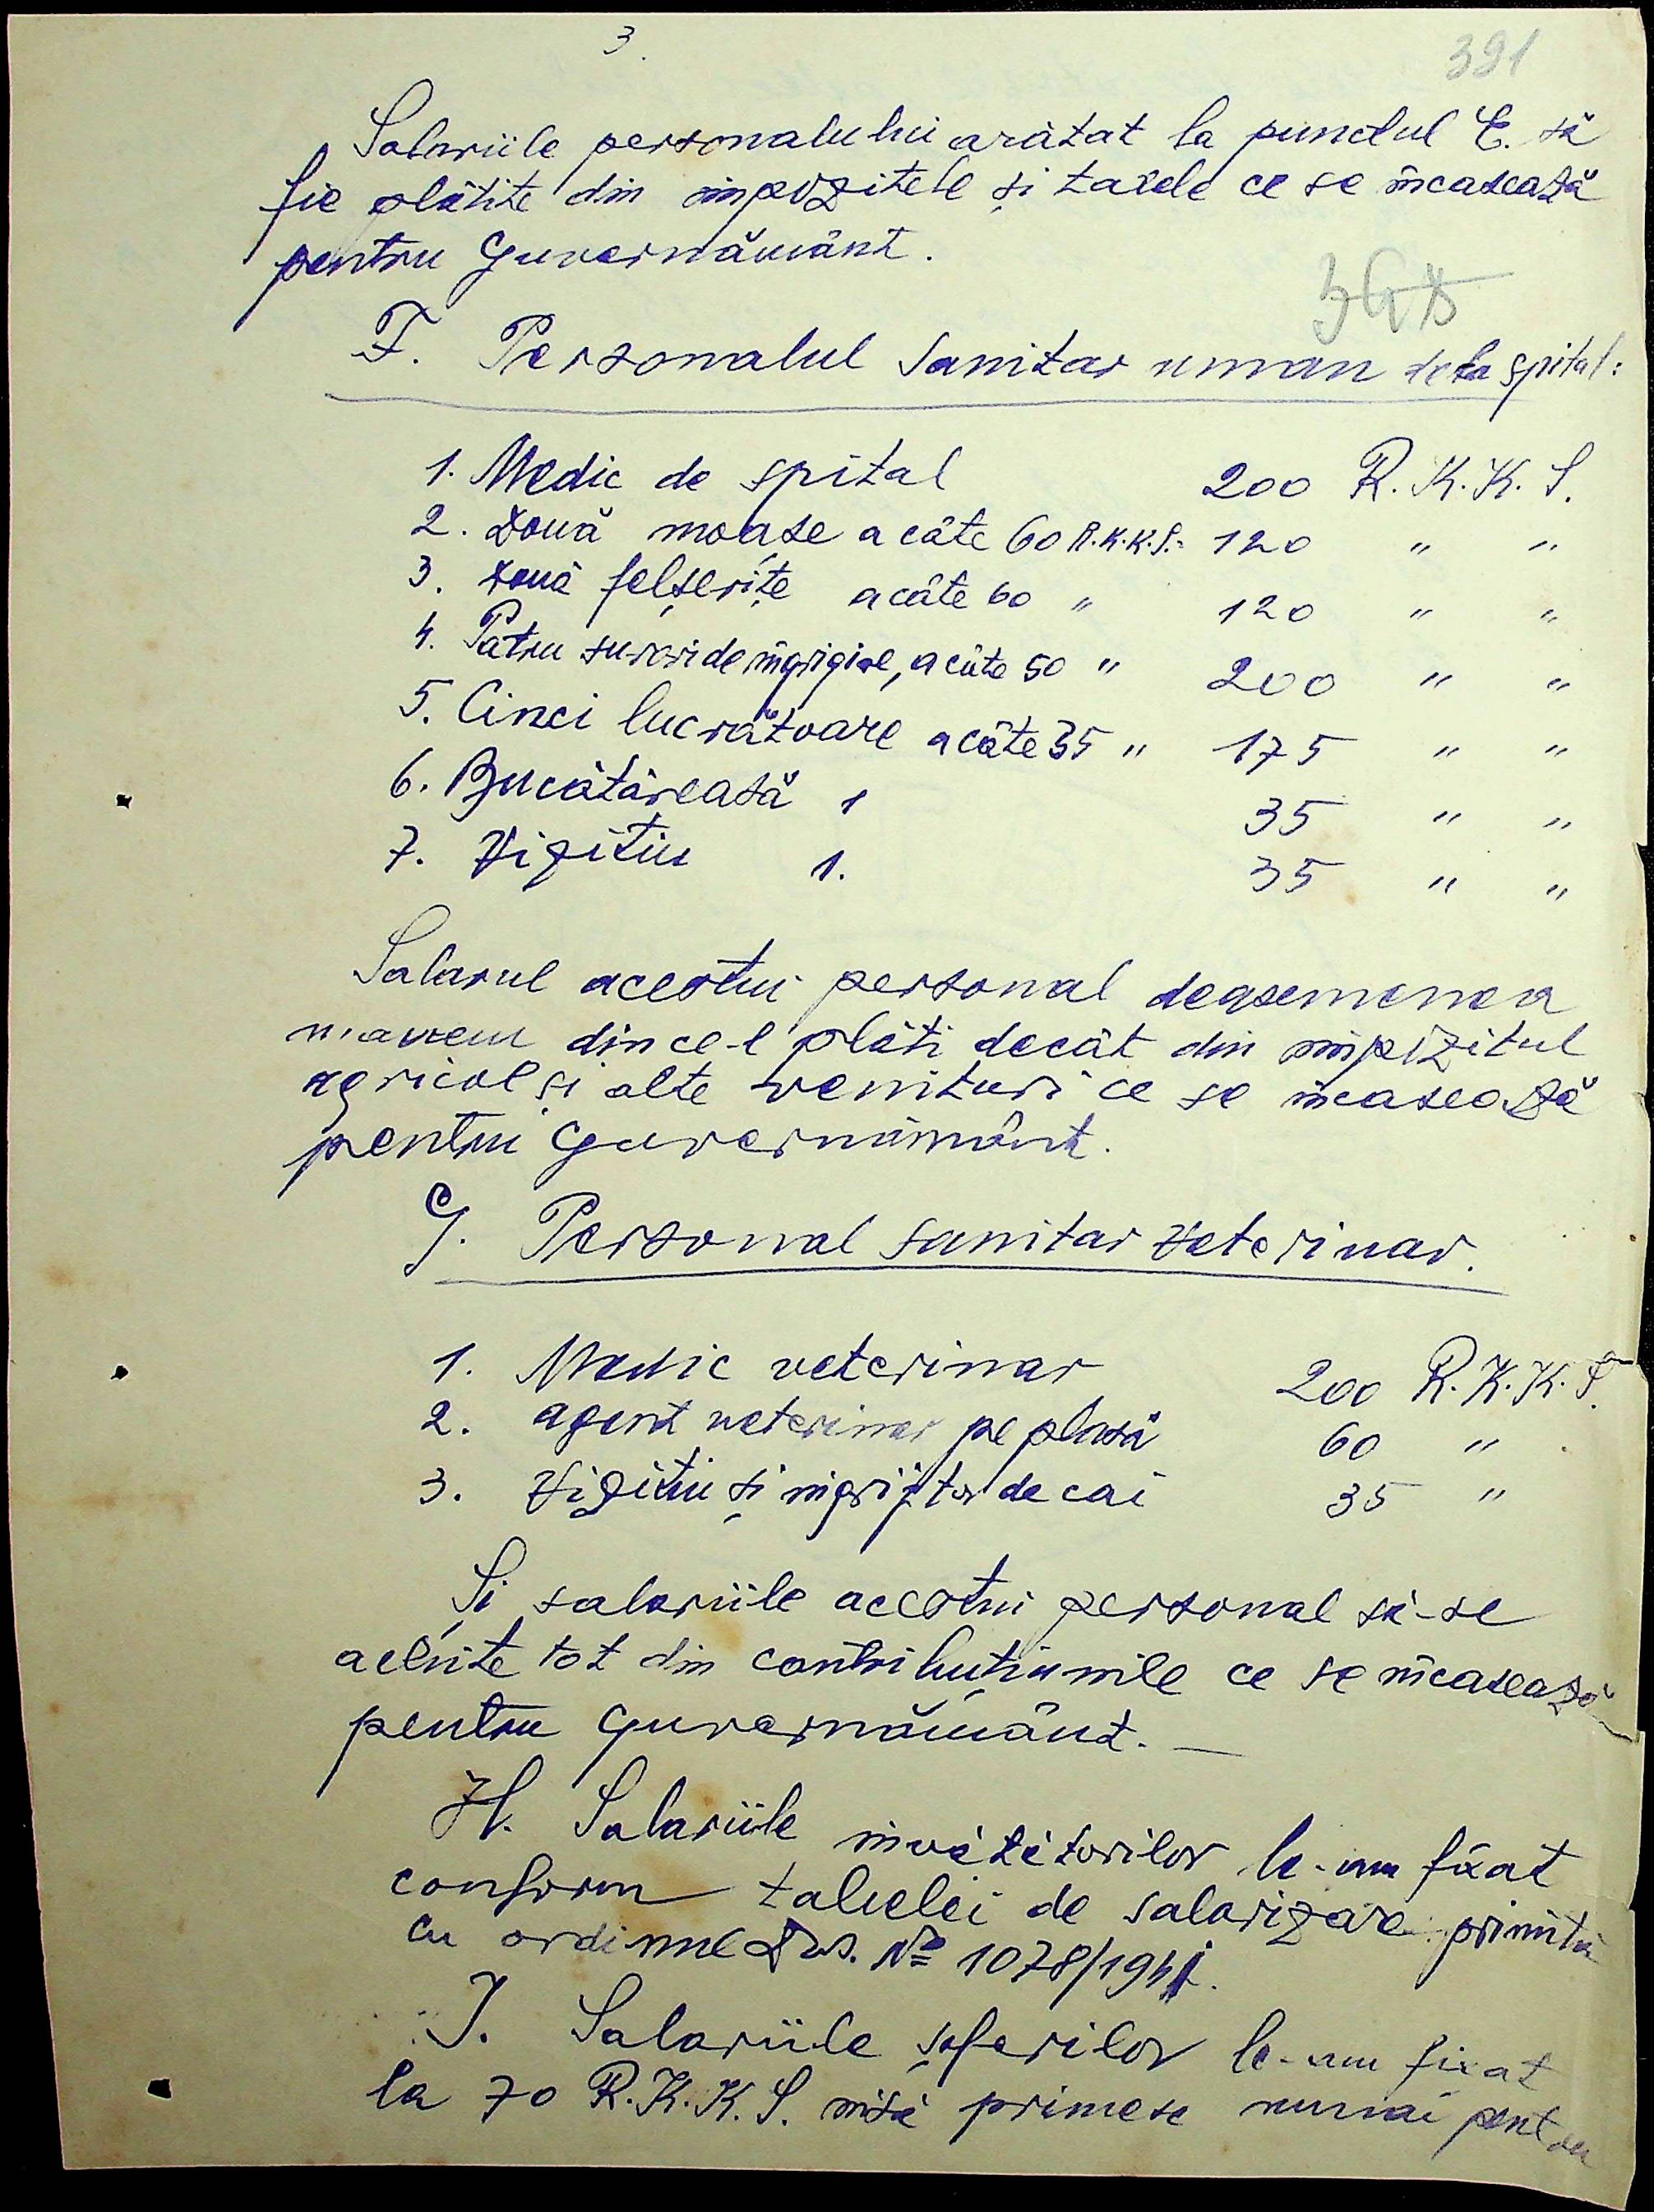 3.
391
Salariile personalului arătat la punctul E. să
fie plătite din impozitele și taxele ce se încasează
pentru Guvernământ.
F. Personalul Sanitar uman dela spital:
1. Medic de spital 200 R.K.K.S.
2. Două moașe a câte 60 R.K.K.S. = 120 " "
3. Două felșerițe a câte 60 " 120 " "
4. Patru surori de îngrigire, a câte 50 " 200 " "
5. Cinci lucrătoare a câte 35 " 175 " "
6. Bucătăreasă 1 35 " "
7. Vizitiu 1. 35 " "
Salarul acestui personal deasemenea
n'avem din ce-l plăti decât din impozitul
agricol și alte venituri ce se încasează
pentru Guvernământ.
G. Personal sanitar veterinar.
1. Medic veterinar 200 R.K.K.S.
2. agent veterinar pe plasă 60 "
3. Vizitiu și îngrijitor de cai 35 "
Și salariile acestui personal să-se
achite tot din contribuțiunile ce se încasează
pentru guvernământ. —
H. Salariile învățătorilor le-am fixat
conform tabelei de salarizare primită
cu ordinul Dvs. № 1078/1941.
I. Salariile șoferilor le-am fixat
la 70 R.K.K.S. însă primesc numai pentru